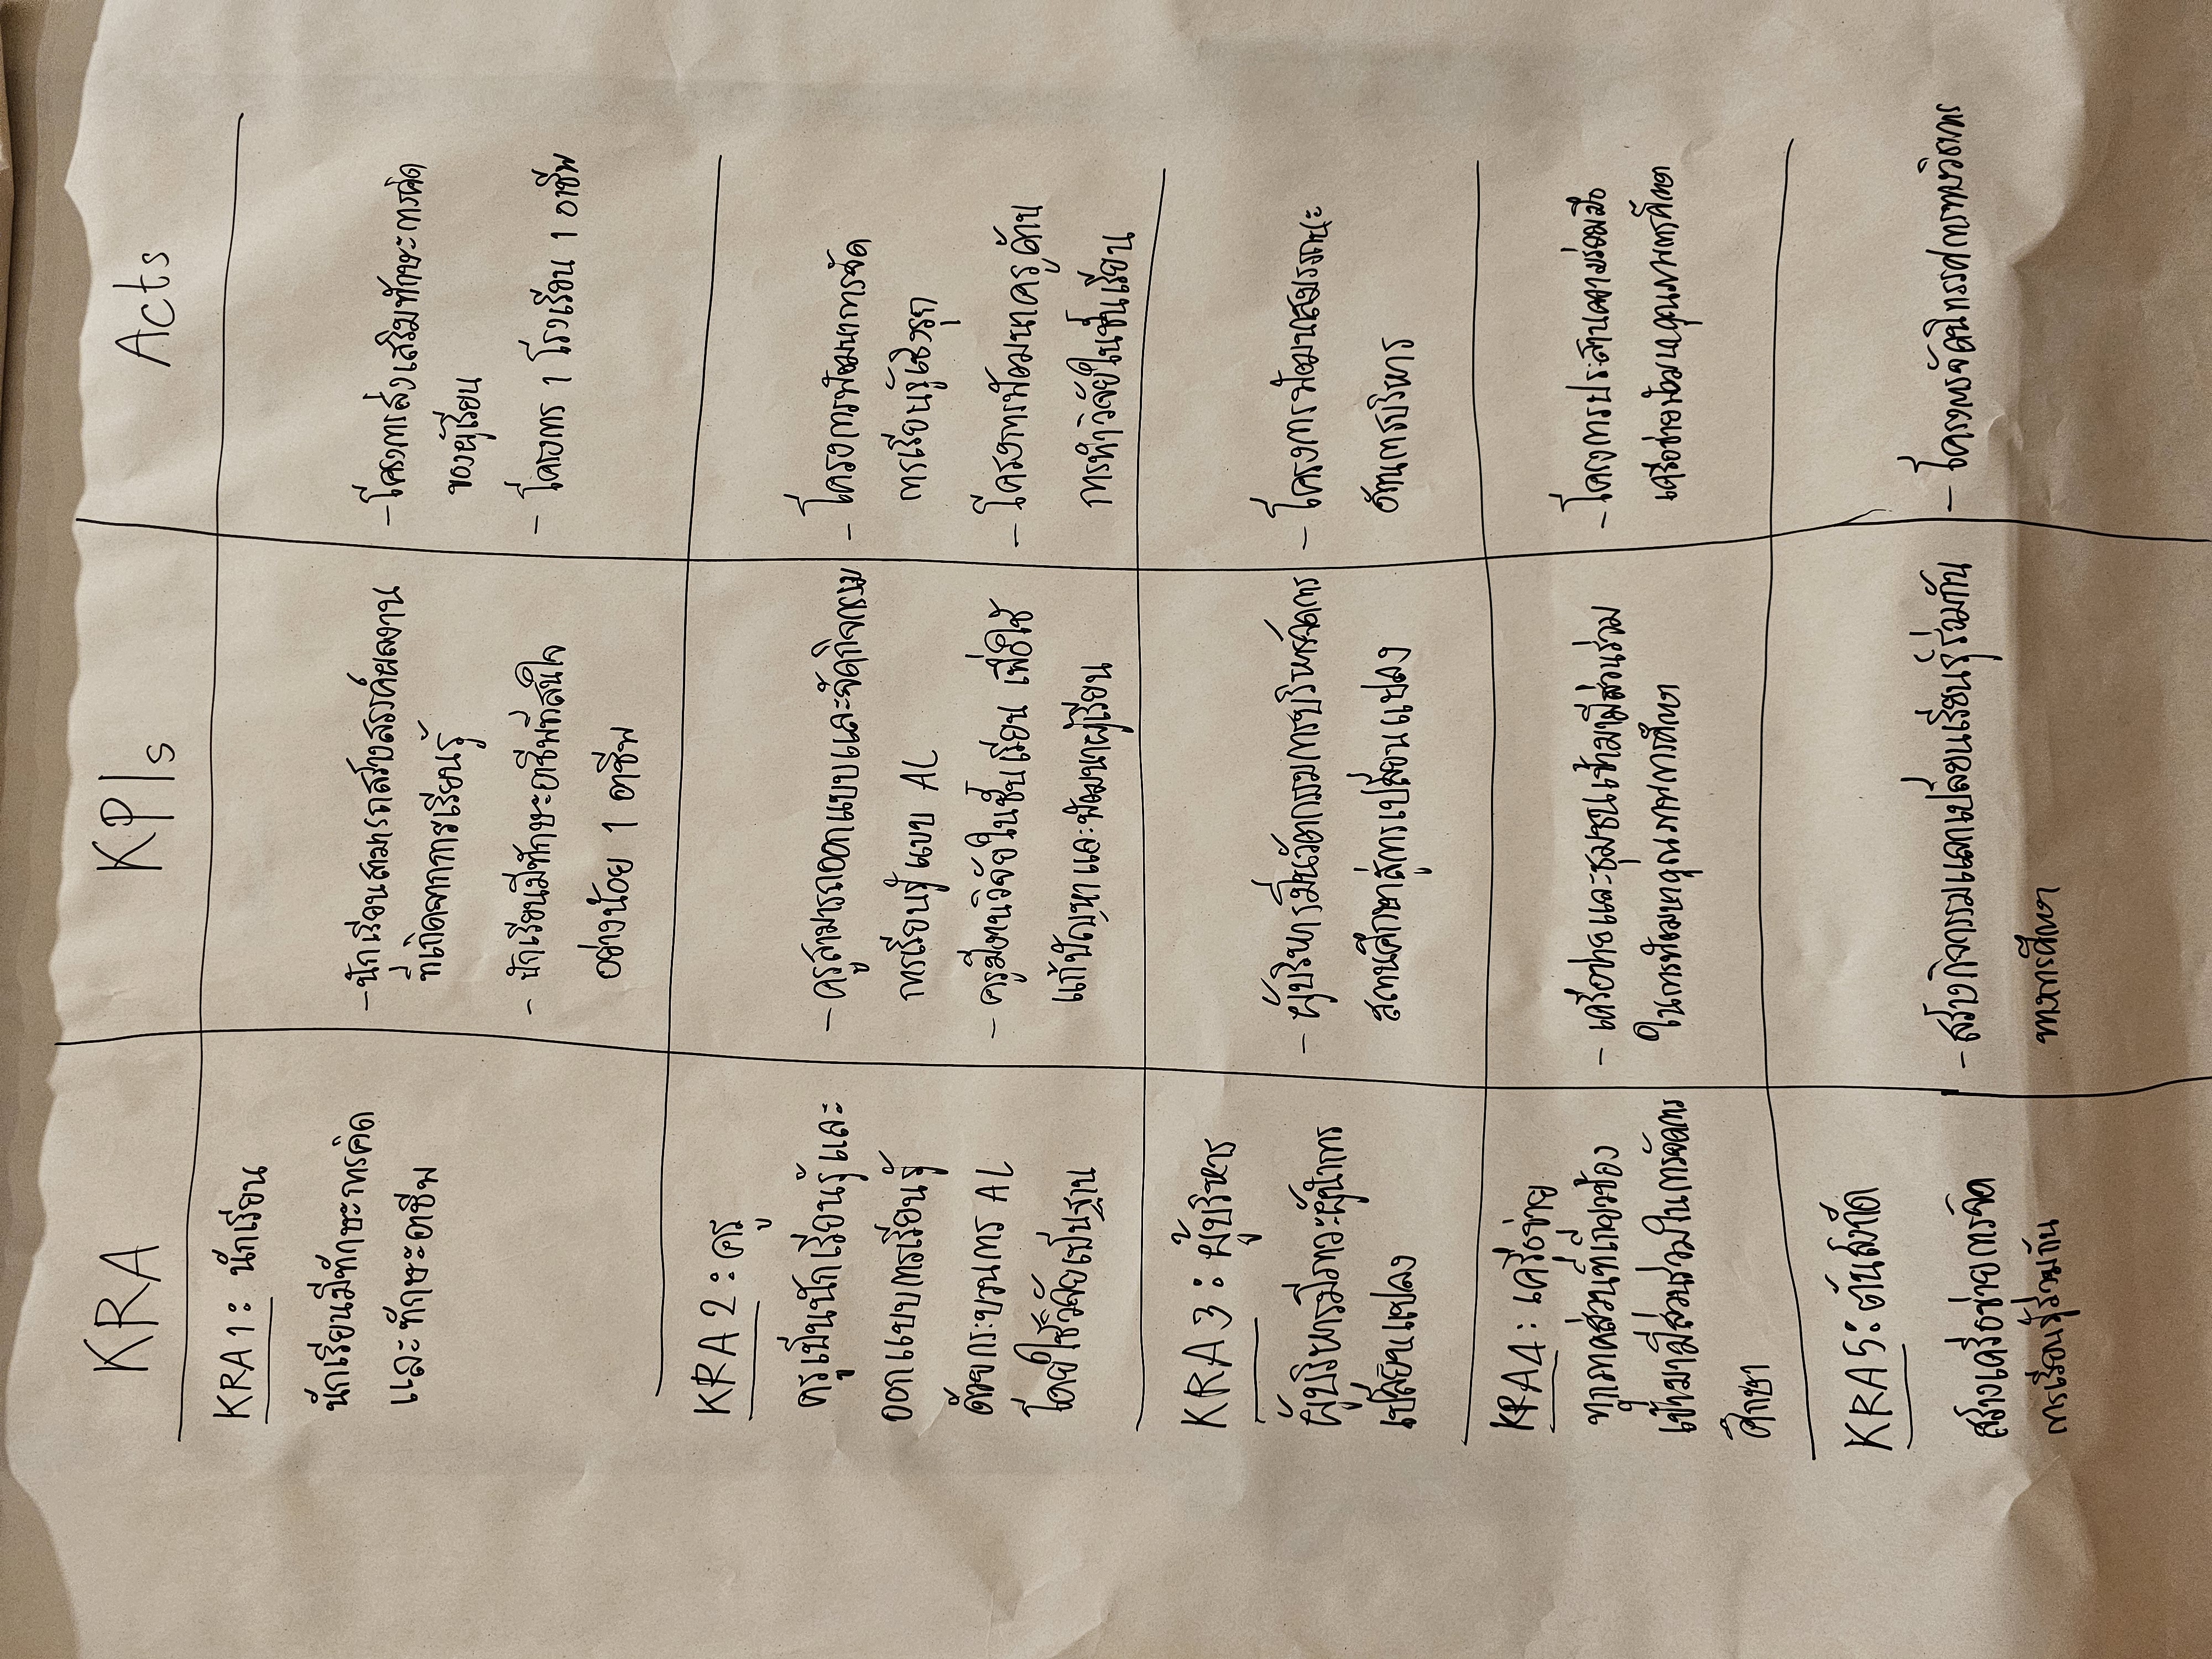 KRA
KPIs
Acts
KRA 1 : นักเรียน
นักเรียนมีทักษะการคิด
และทักษะอาชีพ
- นักเรียนสามารถสร้างสรรค์ผลงาน
ที่เกิดจากการเรียนรู้
- นักเรียนมีทักษะอาชีพที่สนใจ
อย่างน้อย 1 อาชีพ
- โครงการส่งเสริมทักษะการคิด
ของผู้เรียน
- โครงการ 1 โรงเรียน 1 อาชีพ
KRA 2 : ครู
ครูเป็นนักเรียนรู้และ
ออกแบบการเรียนรู้
ด้วยกระบวนการ AL
โดยใช้วิจัยเป็นฐาน
- ครูสามารถออกแบบและจัดกิจกรรม
การเรียนรู้แบบ AL
- ครูมีงานวิจัยในชั้นเรียน เพื่อใช้
แก้ปัญหาและพัฒนาผู้เรียน
- โครงการพัฒนาการจัด
การเรียนรู้เชิงรุก
- โครงการพัฒนาครูด้าน
การทำวิจัยในชั้นเรียน
KRA 3 : ผู้บริหาร
ผู้บริหารมีภาวะผู้นำการ
เปลี่ยนแปลง
- ผู้บริหารมีนวัตกรรมการบริหารจัดการ
สถานศึกษาสู่การเปลี่ยนแปลง
- โครงการพัฒนาสมรรถนะ
ด้านการบริหาร
KRA4 : เครือข่าย
ทุกภาคส่วนที่เกี่ยวข้อง
เข้ามามีส่วนร่วมในการจัดการ
ศึกษา
- เครือข่ายและชุมชนเข้ามามีส่วนร่วม
ในการพัฒนาคุณภาพการศึกษา
- โครงการประสานความร่วมมือ
เครือข่ายพัฒนาคุณภาพการศึกษา
KRA5 : ต้นสังกัด
สร้างเครือข่ายการจัด
การเรียนรู้ร่วมกัน
- สร้างกิจกรรมแลกเปลี่ยนเรียนรู้ร่วมกัน
ทางการศึกษา
- โครงการจัดนิทรรศการทางวิชาการ